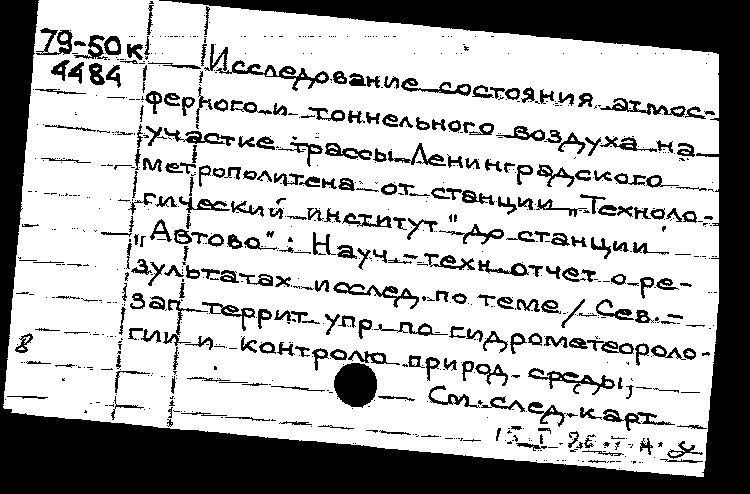 79-50к
4484
Исследование состояния атмос-
ферного и тоннельного воздуха на
участке трассы Ленинградского
метрополитена от станции „Техноло-
гический институт" до станции
„Автово": Науч.-техн. отчет о ре-
зультатах исслед. по теме / Сев.-
зап. террит. упр. по гидрометеороло-
гии и контролю природ. среды;
8
См. след. карт
15 I